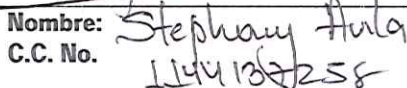 Nombre: Stephany Avila
C.C. No. 1144137258